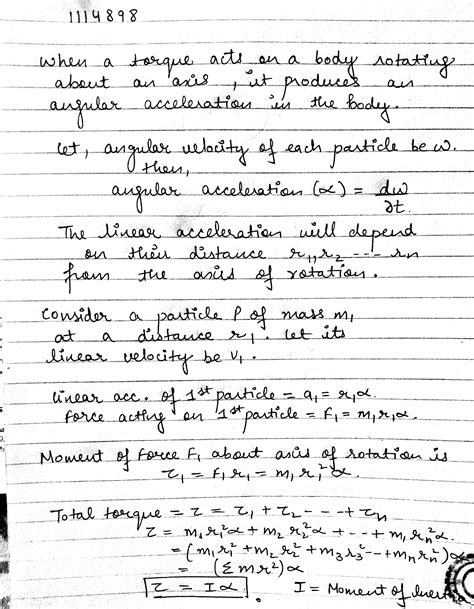 1114898
When a torque acts on a body rotating
about an axis, it produces an
angular acceleration in the body.
Let, angular velocity of each particle be ω.
then,
angular acceleration (α) = dω/∂t.
The linear acceleration will depend
on their distance r₁, r₂ ---- rn
from the axis of rotation.
Consider a particle P of mass m₁
at a distance r₁. Let its
linear velocity be v₁.
Linear acc. of 1st particle = a₁ = r₁α.
Force acting on 1st particle = F₁ = m₁r₁α.
Moment of Force F₁ about axis of rotation is
τ₁ = F₁r₁ = m₁r₁²α.
Total torque = τ = τ₁ + τ₂ - - - - + τn
τ = m₁r₁²α + m₂r₂²α + - - + mnrn²α.
= (m₁r₁² + m₂r₂² + m₃r₃² - - + mnrn²)α
= (Σmr²)α
τ = Iα. I = Moment of Inertia